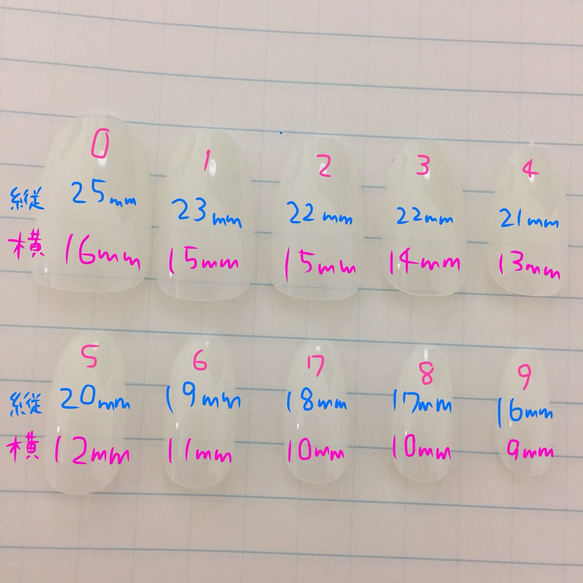 0 1 2 3 4
縦 25mm 23mm 22mm 22mm 21mm
横 16mm 15mm 15mm 14mm 13mm
5 6 7 8 9
縦 20mm 19mm 18mm 17mm 16mm
横 12mm 11mm 10mm 10mm 9mm